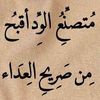 مُتصنِّعُ الوِدِّ أقبحُ
مِن صَريحِ العِداء